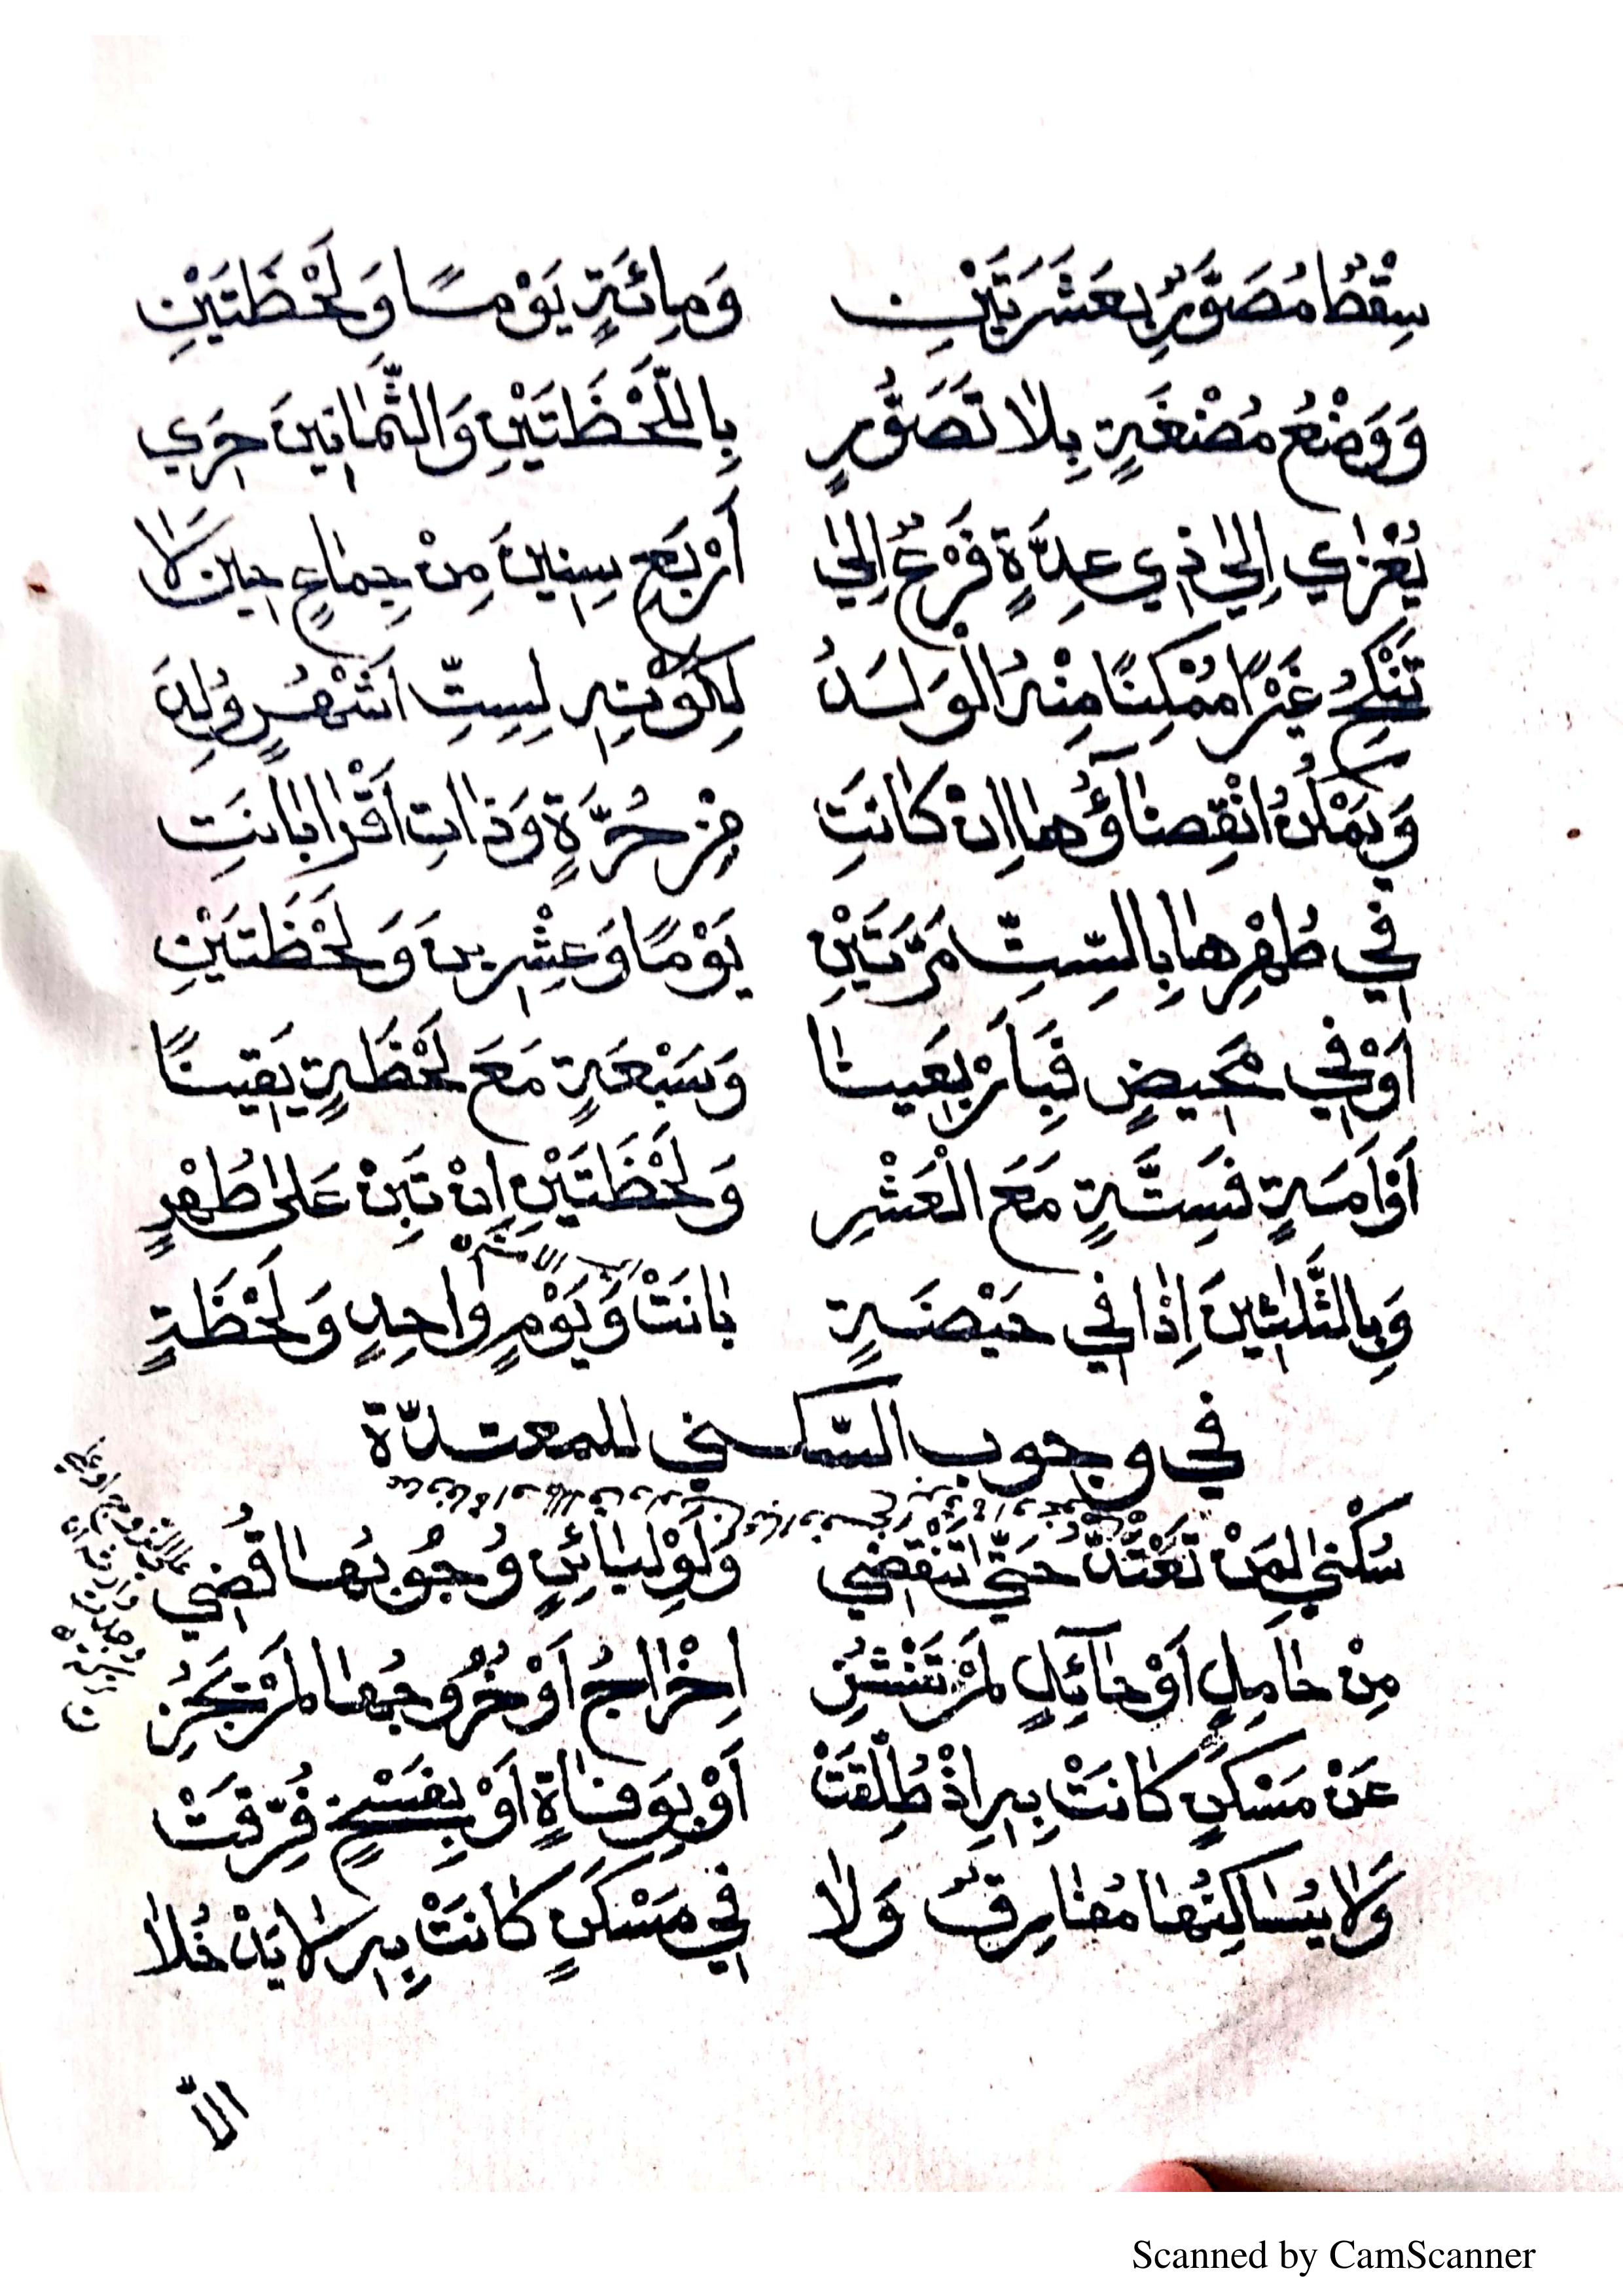 سِقْطٌ مُصَوَّرٌ بِعَشَرَتَيْنِ وَمِائَةٍ يَوْمًا وَلَحْظَتَيْنِ
وَوَضْعُ مُضْغَةٍ بِلَا تَصَوُّرٍ بِاللَّحْظَتَيْنِ وَالثَّمَانِينَ حَرِي
يُعْزَى إِلَى ذِي عِدَّةٍ فَرْعٌ إِلَى أَرْبَعِ سِنِينَ مِنْ جِمَاعٍ حِينَ لَا
تَنْكِحُ غَيْرًا مُمْكِنًا مِنْهُ الْوَلَدُ لِكَوْنِهِ لِسِتِّ أَشْهُرٍ وُلِدَ
وَيُمْكِنُ انْقِضَاؤُهَا إِنْ كَانَتِ مِنْ حُرَّةٍ وَذَاتِ أَقْرَا بَانَتِ
فِي طُهْرِهَا بِالسِّتِّ مَرَّتَيْنِ يَوْمًا وَعِشْرِينَ وَلَحْظَتَيْنِ
أَوْ فِي مَحِيضٍ فَبِأَرْبَعِينَا وَسَبْعَةٍ مَعَ لَحْظَةٍ يَقِينًا
أَوْ أَمَةٍ فَسِتَّةٍ مَعَ الْعَشْرِ وَلَحْظَتَيْنِ إِنْ تَبِنْ عَلَى طُهْرٍ
وَبِالثَّلَاثِينَ إِذَا فِي حَيْضَةٍ بَانَتْ وَيَوْمٍ وَاحِدٍ وَلَحْظَةٍ
في وجوب السّكني للمعتدّة
سُكْنَى لِمَنْ تَعْتَدُّ حَتَّى تَنْقَضِي وَلَوْ لِبَائِنٍ وُجُوبُهَا قُضِي
مِنْ حَامِلٍ أَوْ حَائِلٍ لَمْ تَنْشُزِ إِخْرَاجُ أَوْ خُرُوجُهَا لَمْ يَجُزِ
عَنْ مَسْكَنٍ كَانَتْ بِهِ إِذْ طُلِّقَتْ أَوْ بِوَفَاةٍ أَوْ بِفَسْخٍ فُرِّقَتْ
وَلَا يُسَاكِنُهَا مُفَارِقٌ وَلَا فِي مَسْكَنٍ كَانَتْ بِهِ لَا يَدْخُلَا
الّا
Scanned by CamScanner